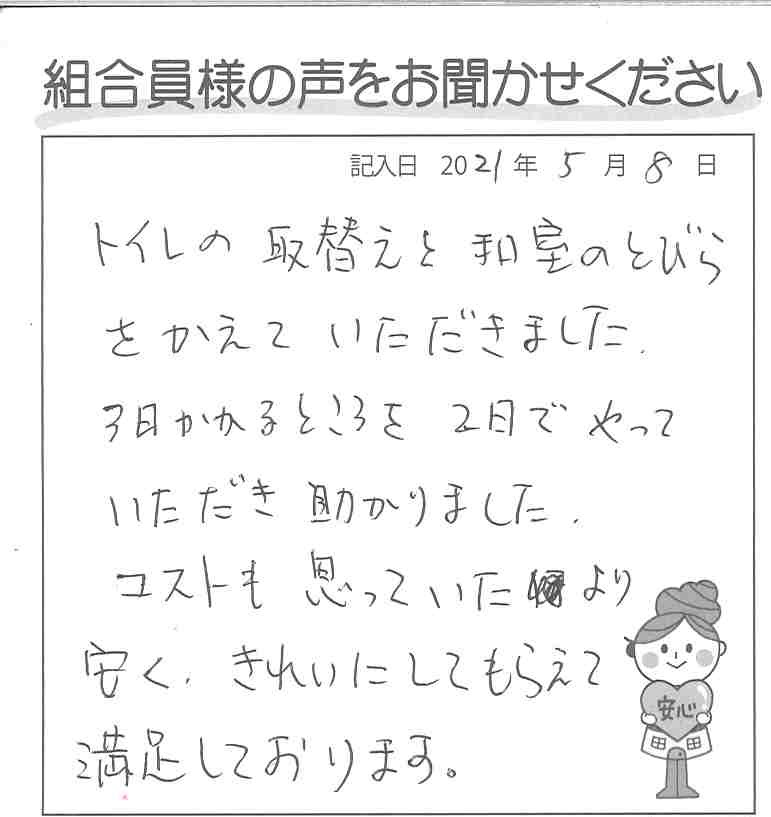 組合員様の声をお聞かせください
記入日 2021年 5月 8日
トイレの 取替えと 和室のとびら
をかえて いただきました.
3日かかるところを 2日で やって
いただき 助かりました.
コストも 思っていた より
安く, きれいにしてもらえて
満足しております。
安心